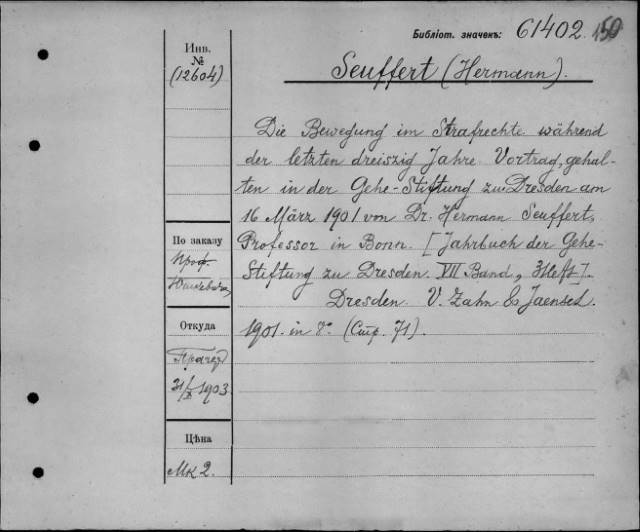 Библіот. значекъ: 61402 150
Инв.
№
(12604)
Seuffert (Hermann).
Die Bewegung im Strafrechte während
der letzten dreiszig Jahre Vortrag, gehal-
ten in der Gehe-Stiftung zu Dresden am
16 März 1901 von Dr. Hermann Seuffert,
Professor in Bonn. [Jahrbuch der Gehe-
Stiftung zu Dresden. VII Band, 3 Heft].
Dresden. V. Zahn & Jaensch.
1901. in 8° (Стр. 71).
По заказу
Проф.
Откуда
21/X 1903
Цѣна
Мк 2.